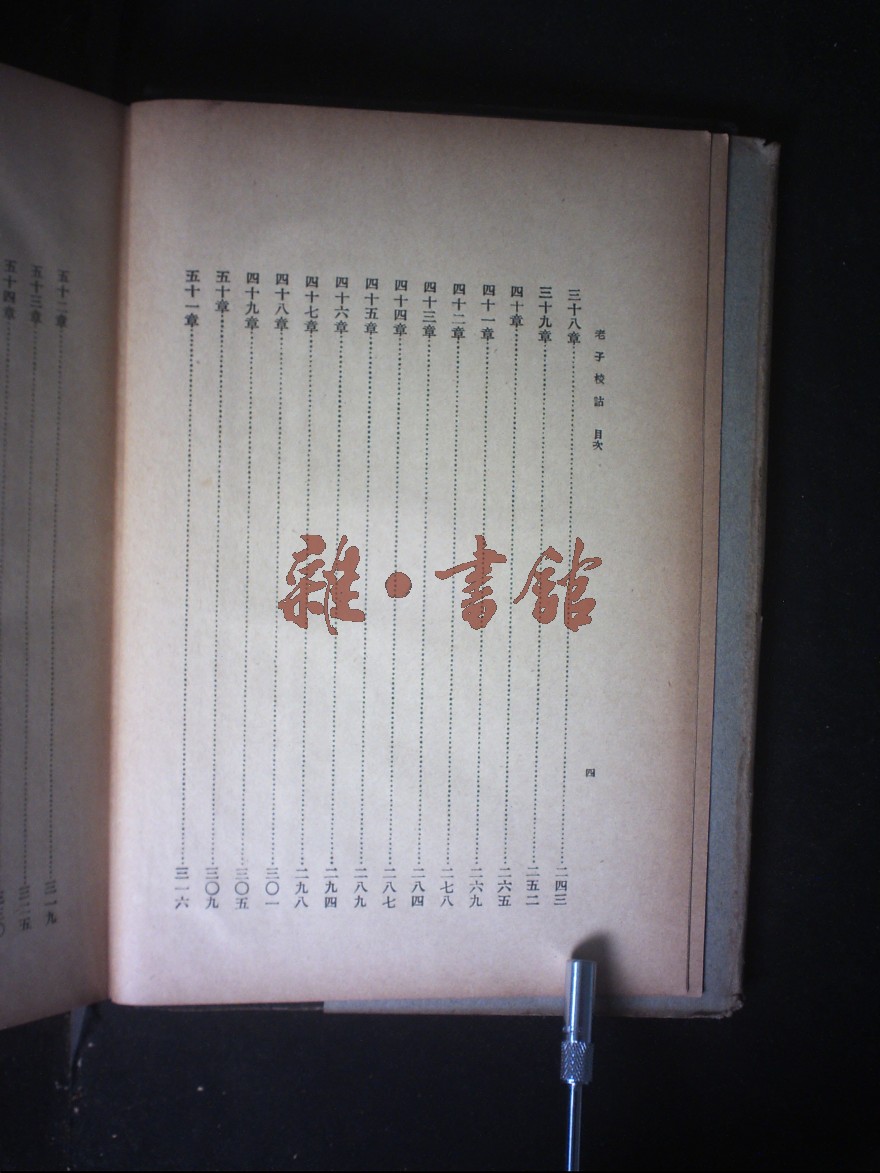 老子校詁 目次
四
三十八章……二四三
三十九章……二五二
四十章……二六五
四十一章……二六九
四十二章……二七八
四十三章……二八四
四十四章……二八七
四十五章……二八九
四十六章……二九四
四十七章……二九八
四十八章……三〇一
四十九章……三〇五
五十章……三〇九
五十一章……三一六
五十二章……三一九
五十三章……三二五
五十四章
雜·書館